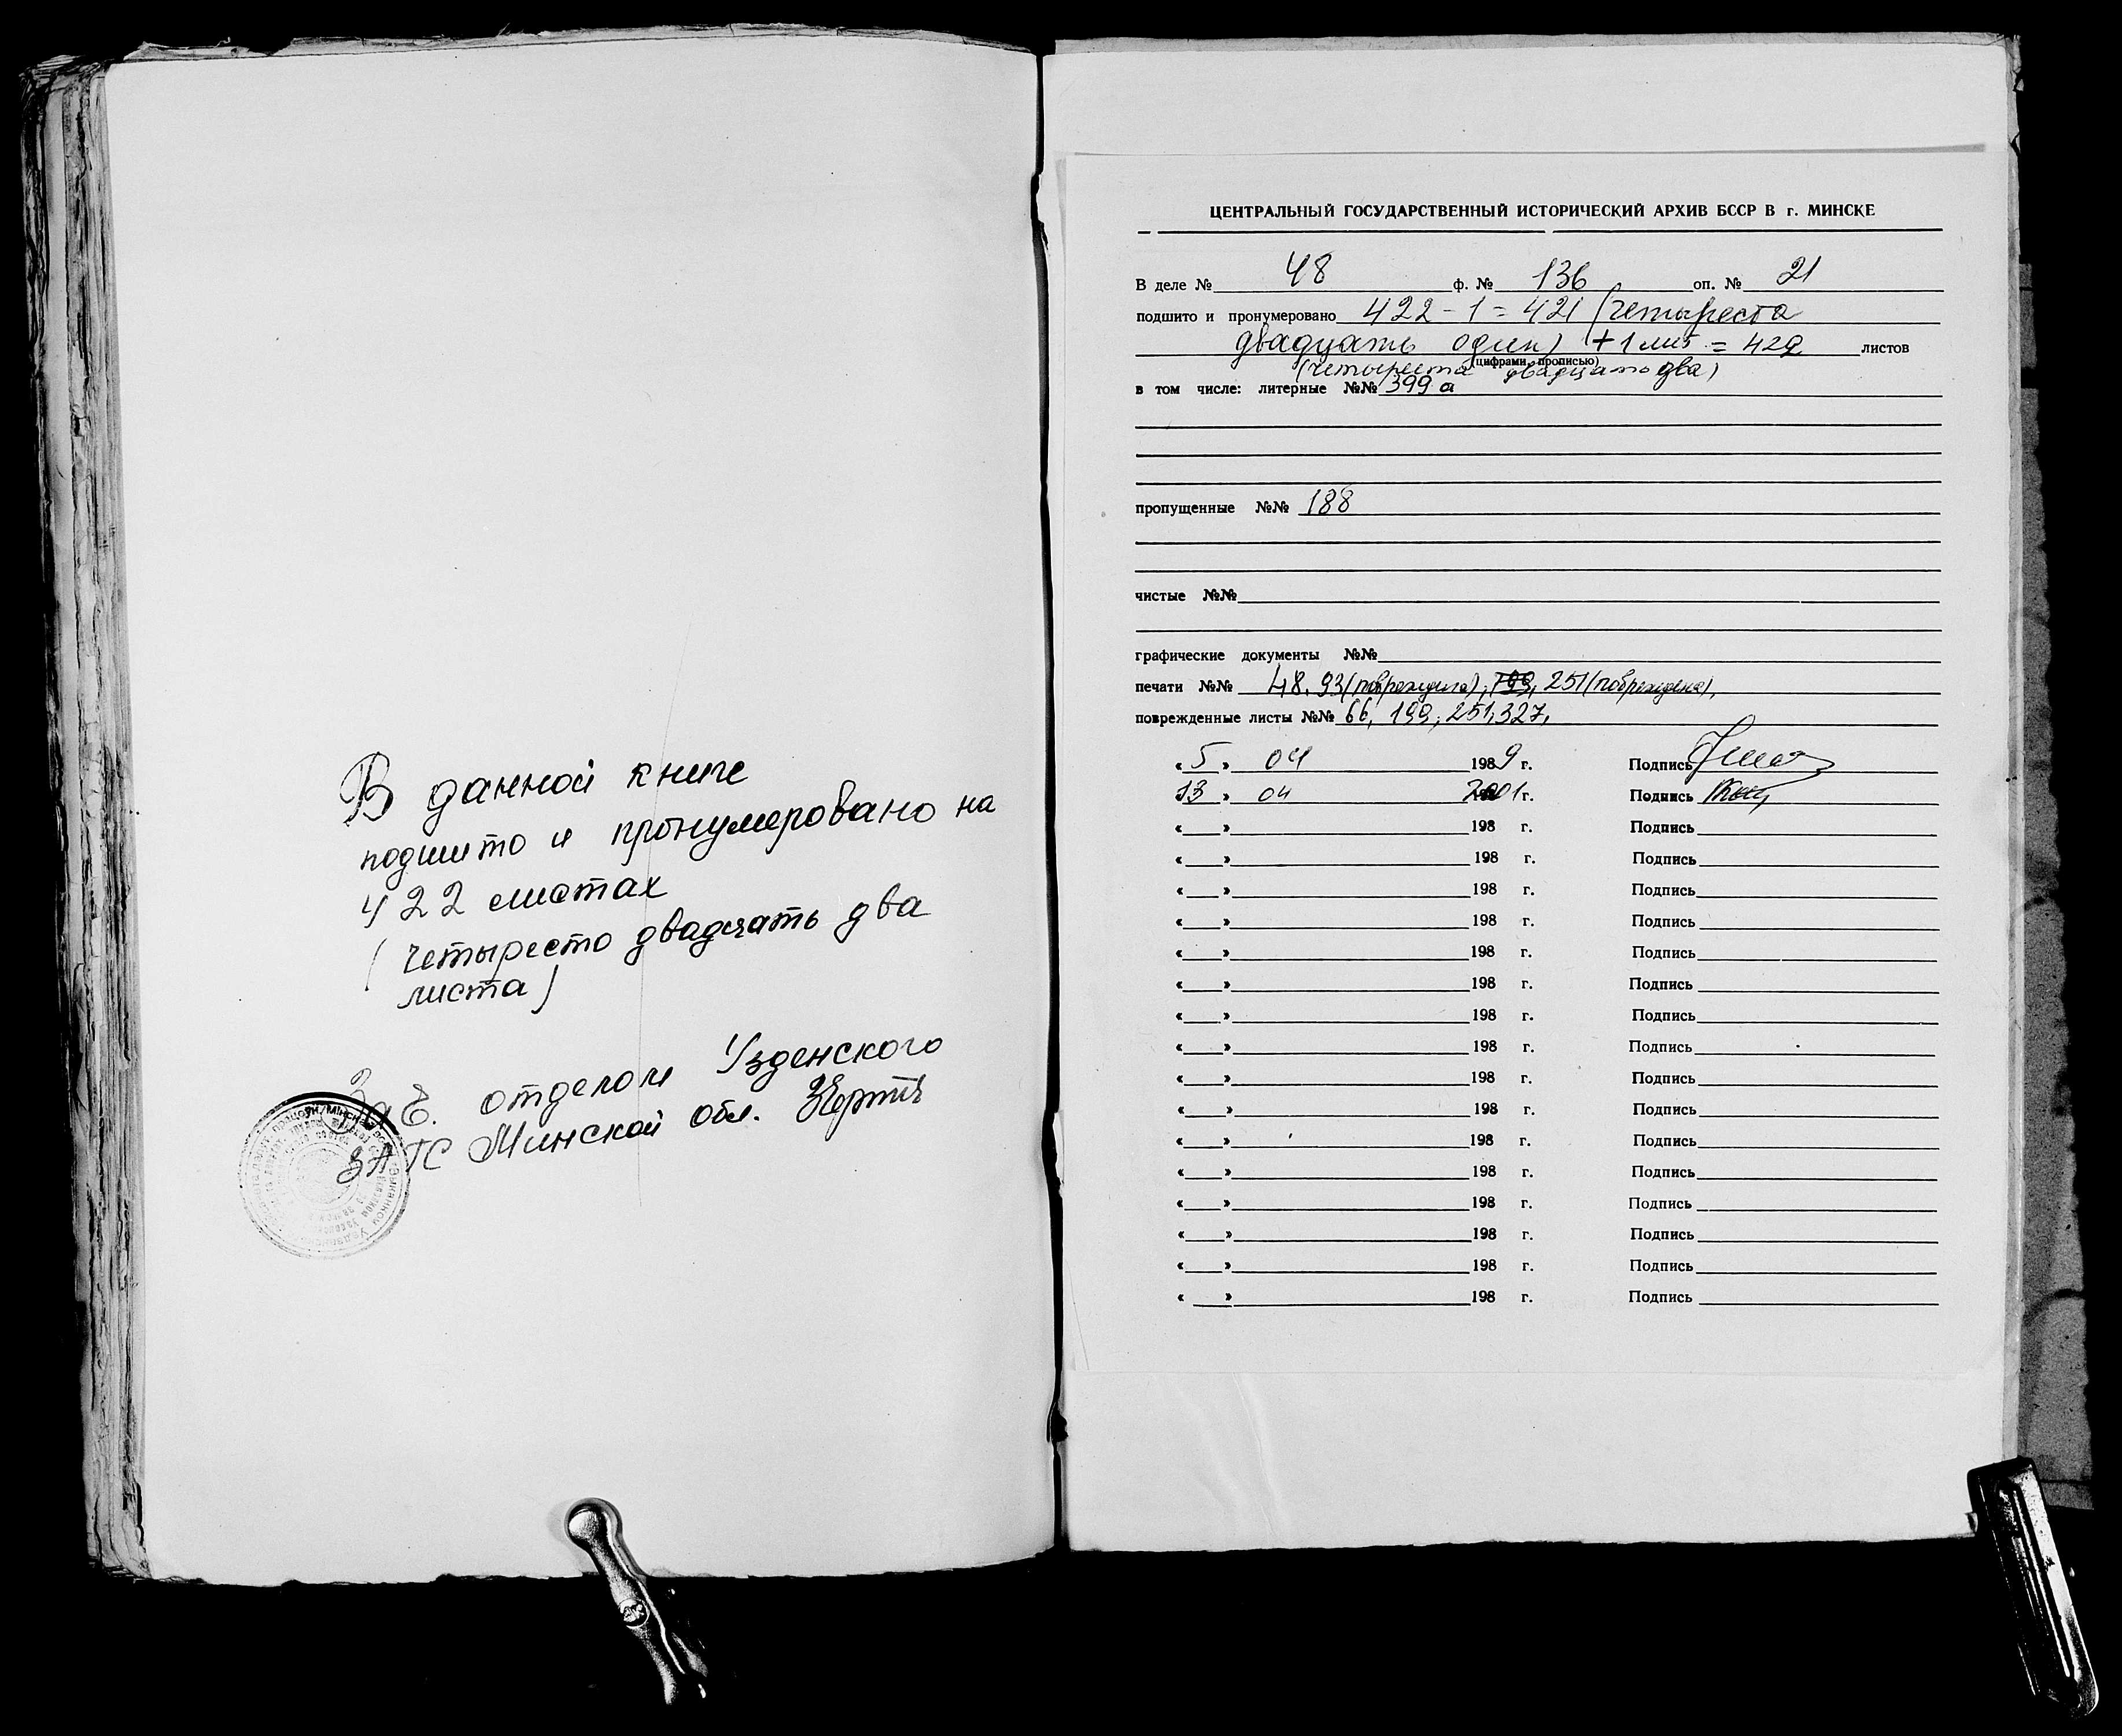 В данной книге
подшито и пронумеровано на
422 листах
(четыресто двадцать два
листа)
отделом Узденского
ЗАГС Минской обл.
ЦЕНТРАЛЬНЫЙ ГОСУДАРСТВЕННЫЙ ИСТОРИЧЕСКИЙ АРХИВ БССР В г. МИНСКЕ
В деле № 48 ф. № 136 оп. № 21
подшито и пронумеровано 422 - 1 = 421 (четыреста
двадцать один) + 1 лит = 422 листов
(цифрами, прописью)
(четыреста двадцать два)
в том числе: литерные №№ 399 а
пропущенные №№ 188
чистые №№
графические документы №№
печати №№ 48, 93 (повреждена), 199, 251 (повреждена),
поврежденные листы №№ 66, 199, 251, 327,
« 5 » 04 1989 г. Подпись
« 13 » 04 2001 г. Подпись
« » 198 г. Подпись
« » 198 г. Подпись
« » 198 г. Подпись
« » 198 г. Подпись
« » 198 г. Подпись
« » 198 г. Подпись
« » 198 г. Подпись
« » 198 г. Подпись
« » 198 г. Подпись
« » 198 г. Подпись
« » 198 г. Подпись
« » 198 г. Подпись
« » 198 г. Подпись
« » 198 г. Подпись
« » 198 г. Подпись
« » 198 г. Подпись